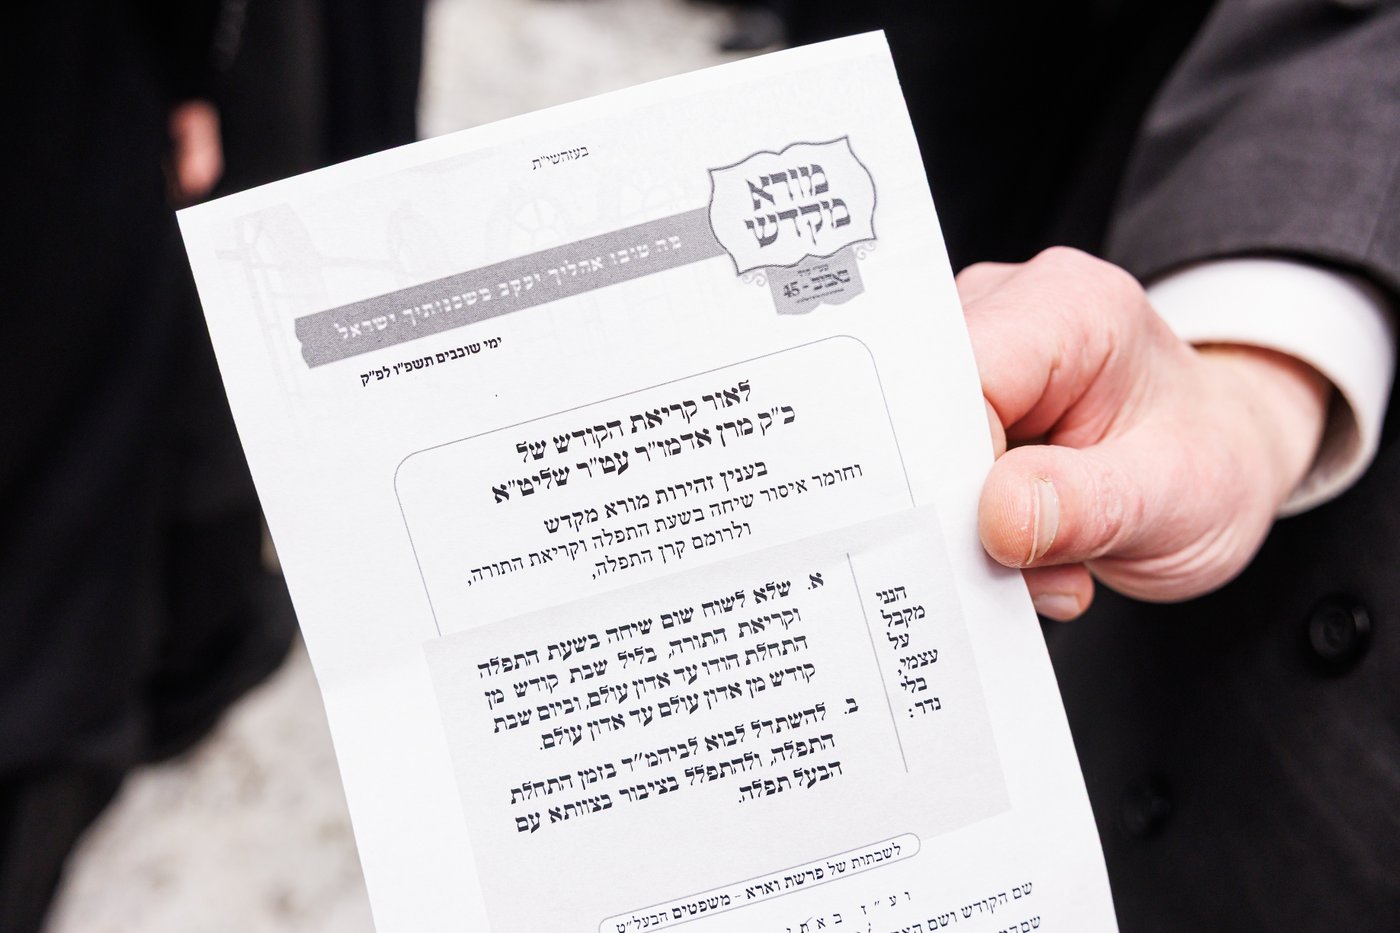 בעזהשי״ת
מורא
מקדש
באבוב - 45
מה טובו אהליך יעקב משכנותיך ישראל
ימי שובבים תשפ״ו לפ״ק
לאור קריאת הקודש של
כ״ק מרן אדמו״ר עט״ר שליט״א
בענין זהירות מורא מקדש
וחומר איסור שיחה בשעת התפלה וקריאת התורה,
ולרומם קרן התפלה,
הנני
מקבל
על
עצמי,
בלי
נדר:
א. שלא לשוח שום שיחה בשעת התפלה
וקריאת התורה, בליל שבת קודש מן
התחלת הודו עד אדון עולם, וביום שבת
קודש מן אדון עולם עד אדון עולם.
ב. להשתדל לבוא לביהמ״ד בזמן התחלת
התפלה, ולהתפלל בציבור בצוותא עם
הבעל תפלה.
לשבתות של פרשת וארא - משפטים הבעל״ט
שם הקודש ושם